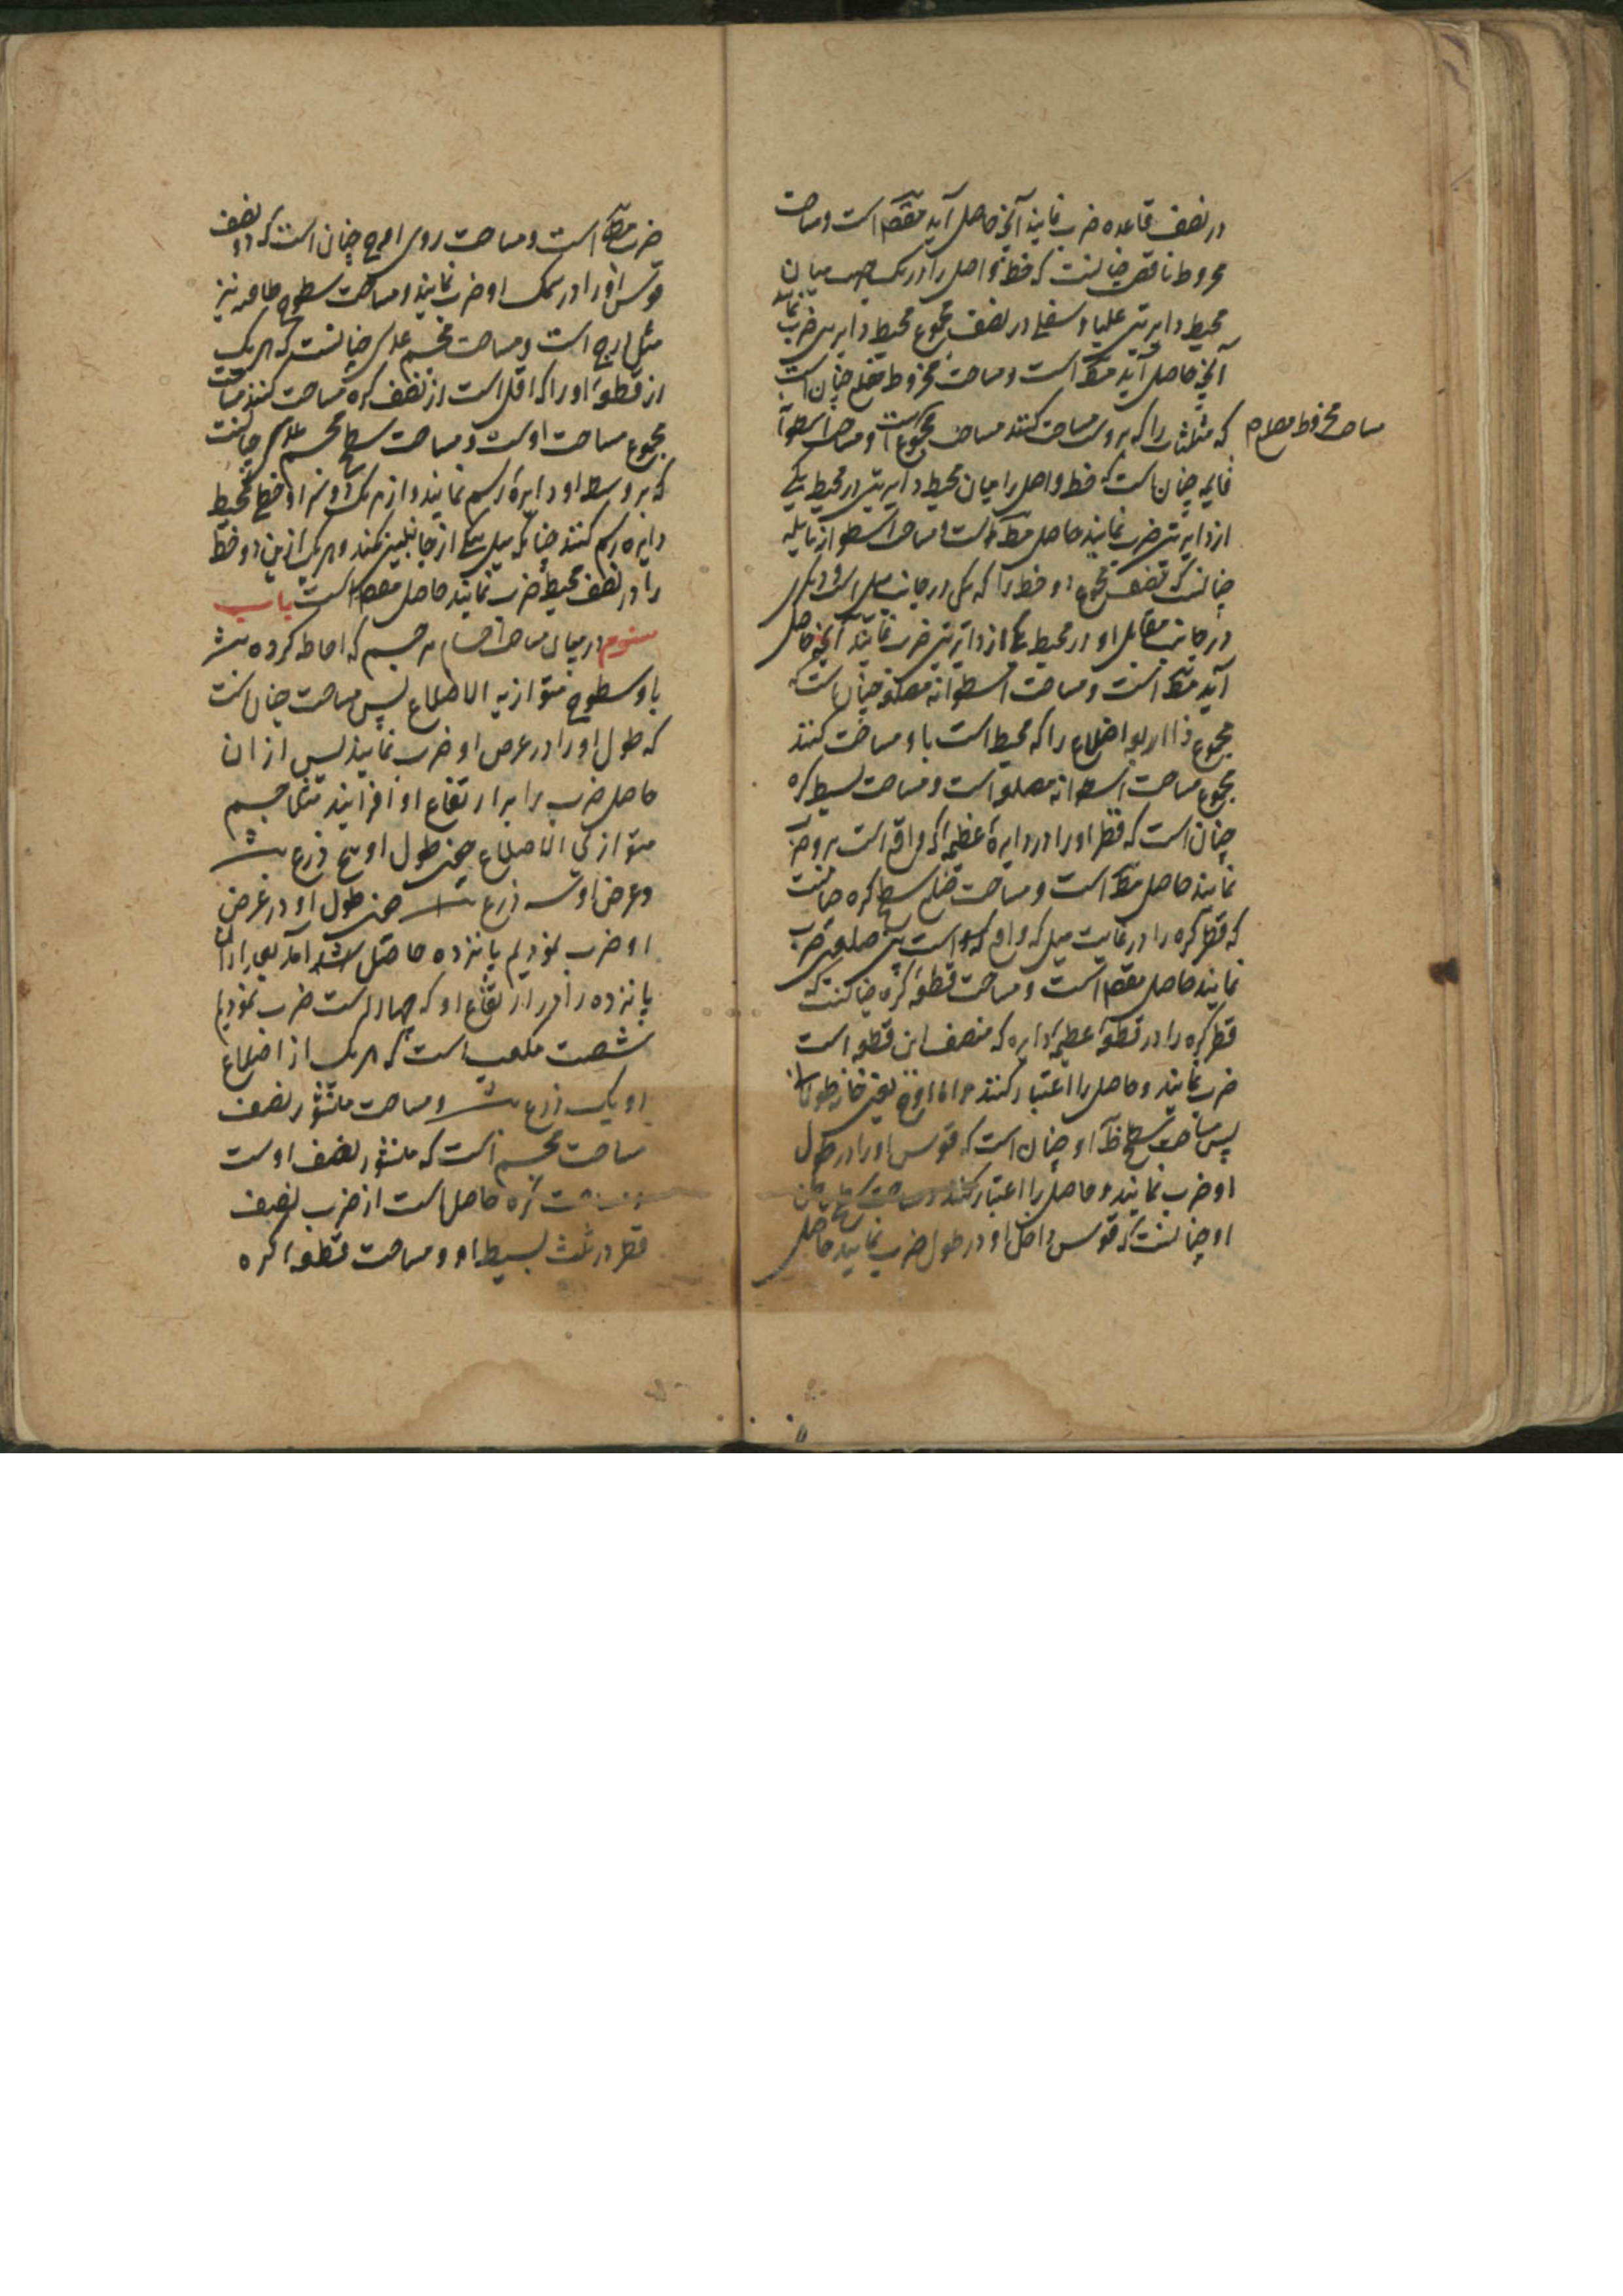 در نصف قاعده ضرب نمایند آنچه حاصل آید مقصد است و مساحت
مخروط ناقص چنانست که خط واصل را در یک جهت میان
محیط دایرتین علیا و سفلی در نصف مجموع محیط دایرتین ضرب نمایند
آنچه حاصل آید مط است و مساحت مخروط مضلع چنان است
که مثلثات را که بروست مساحت کنند مساحت مجموع است و مساحت اسطوانه
مساحت مخروط مضلع
قایمه چنان است که خط واصل را میان محیط دایرتین در محیط یکی
از دایرتین ضرب نمایند حاصل مط است و مساحت اسطوانه مایله
چنانست که نصف مجموع دو خط را که یکی در جانب میل است و دیگری
در جانب مقابل او در محیط یکی از دایرتین ضرب نمایند آنچه حاصل
آید مط است و مساحت اسطوانه مضلع چنان است که
مجموع ذا اربعه اضلاع را که محیط است باو مساحت کنند
مجموع مساحت اسطوانه مضلع است و مساحت بسیط کره
چنان است که قطر او را در دایره عظیمه که واقع است برو ضرب
نمایند حاصل مط است و مساحت ضلع سطح کره چنانست
که قطر کره را در غایت میل که واقع است بین ضلعین ضرب
نمایند حاصل مقصد است و مساحت قطعه کره چنانست که
قطر کره را در قطعه عظیمه دایره که منصف این قطعه است
ضرب نمایند و حاصل را اعتبار کنند و اما ازج یعنی خانه طولانی
پس مساحت سطح ظاهر او چنان است که قوس او را در طول
او ضرب نمایند و حاصل را اعتبار کنند و مساحت سطح باطن
او چنانست که قوس داخل او در طول ضرب نمایند حاصل
ضرب مط است و مساحت روی ازج چنان است که دو نصف
قوس او را در سمک او ضرب نمایند و مساحت سطوح طاقیه نیز
مثل ازج است و مساحت مجسم عدسی چنانست که هر یک
از قطعه او را که اقل است از نصف کره مساحت کنند مساحت
مجموع مساحت اوست و مساحت سطح مجسم عدسی چنانست
که بر وسط او دایره رسم نمایند و از هر یک دو سر او خطی محیط
دایره رسم کنند چنانکه میل یکی از جانبین نکند و هر یک ازین دو خط
را در نصف محیط ضرب نمایند حاصل مقصد است باب
سیوم در بیان مساحت اجسام هر جسم که احاطه کرده باشد
باو سطوح متوازیه الاضلاع پس مساحت چنان است
که طول او را در عرض او ضرب نمایند پس از ان
حاصل ضرب را بر ارتفاع او افزایند مثلا جسم
متوازی الاضلاع که طول او پنج ذرع باشد
و عرض او سه ذرع باشد چون طول او در عرض
او ضرب نمودیم پانزده حاصل آمد بعد از ان
پانزده را در ارتفاع او که چهار است ضرب نمودیم
شصت مکعب است که هر یک از اضلاع
او یک ذرع باشد و مساحت منشور نصف
مساحت مجسم است که منشور نصف اوست
و مساحت کره حاصل است از ضرب نصف
قطر در ثلث بسیط او و مساحت قطعه کره